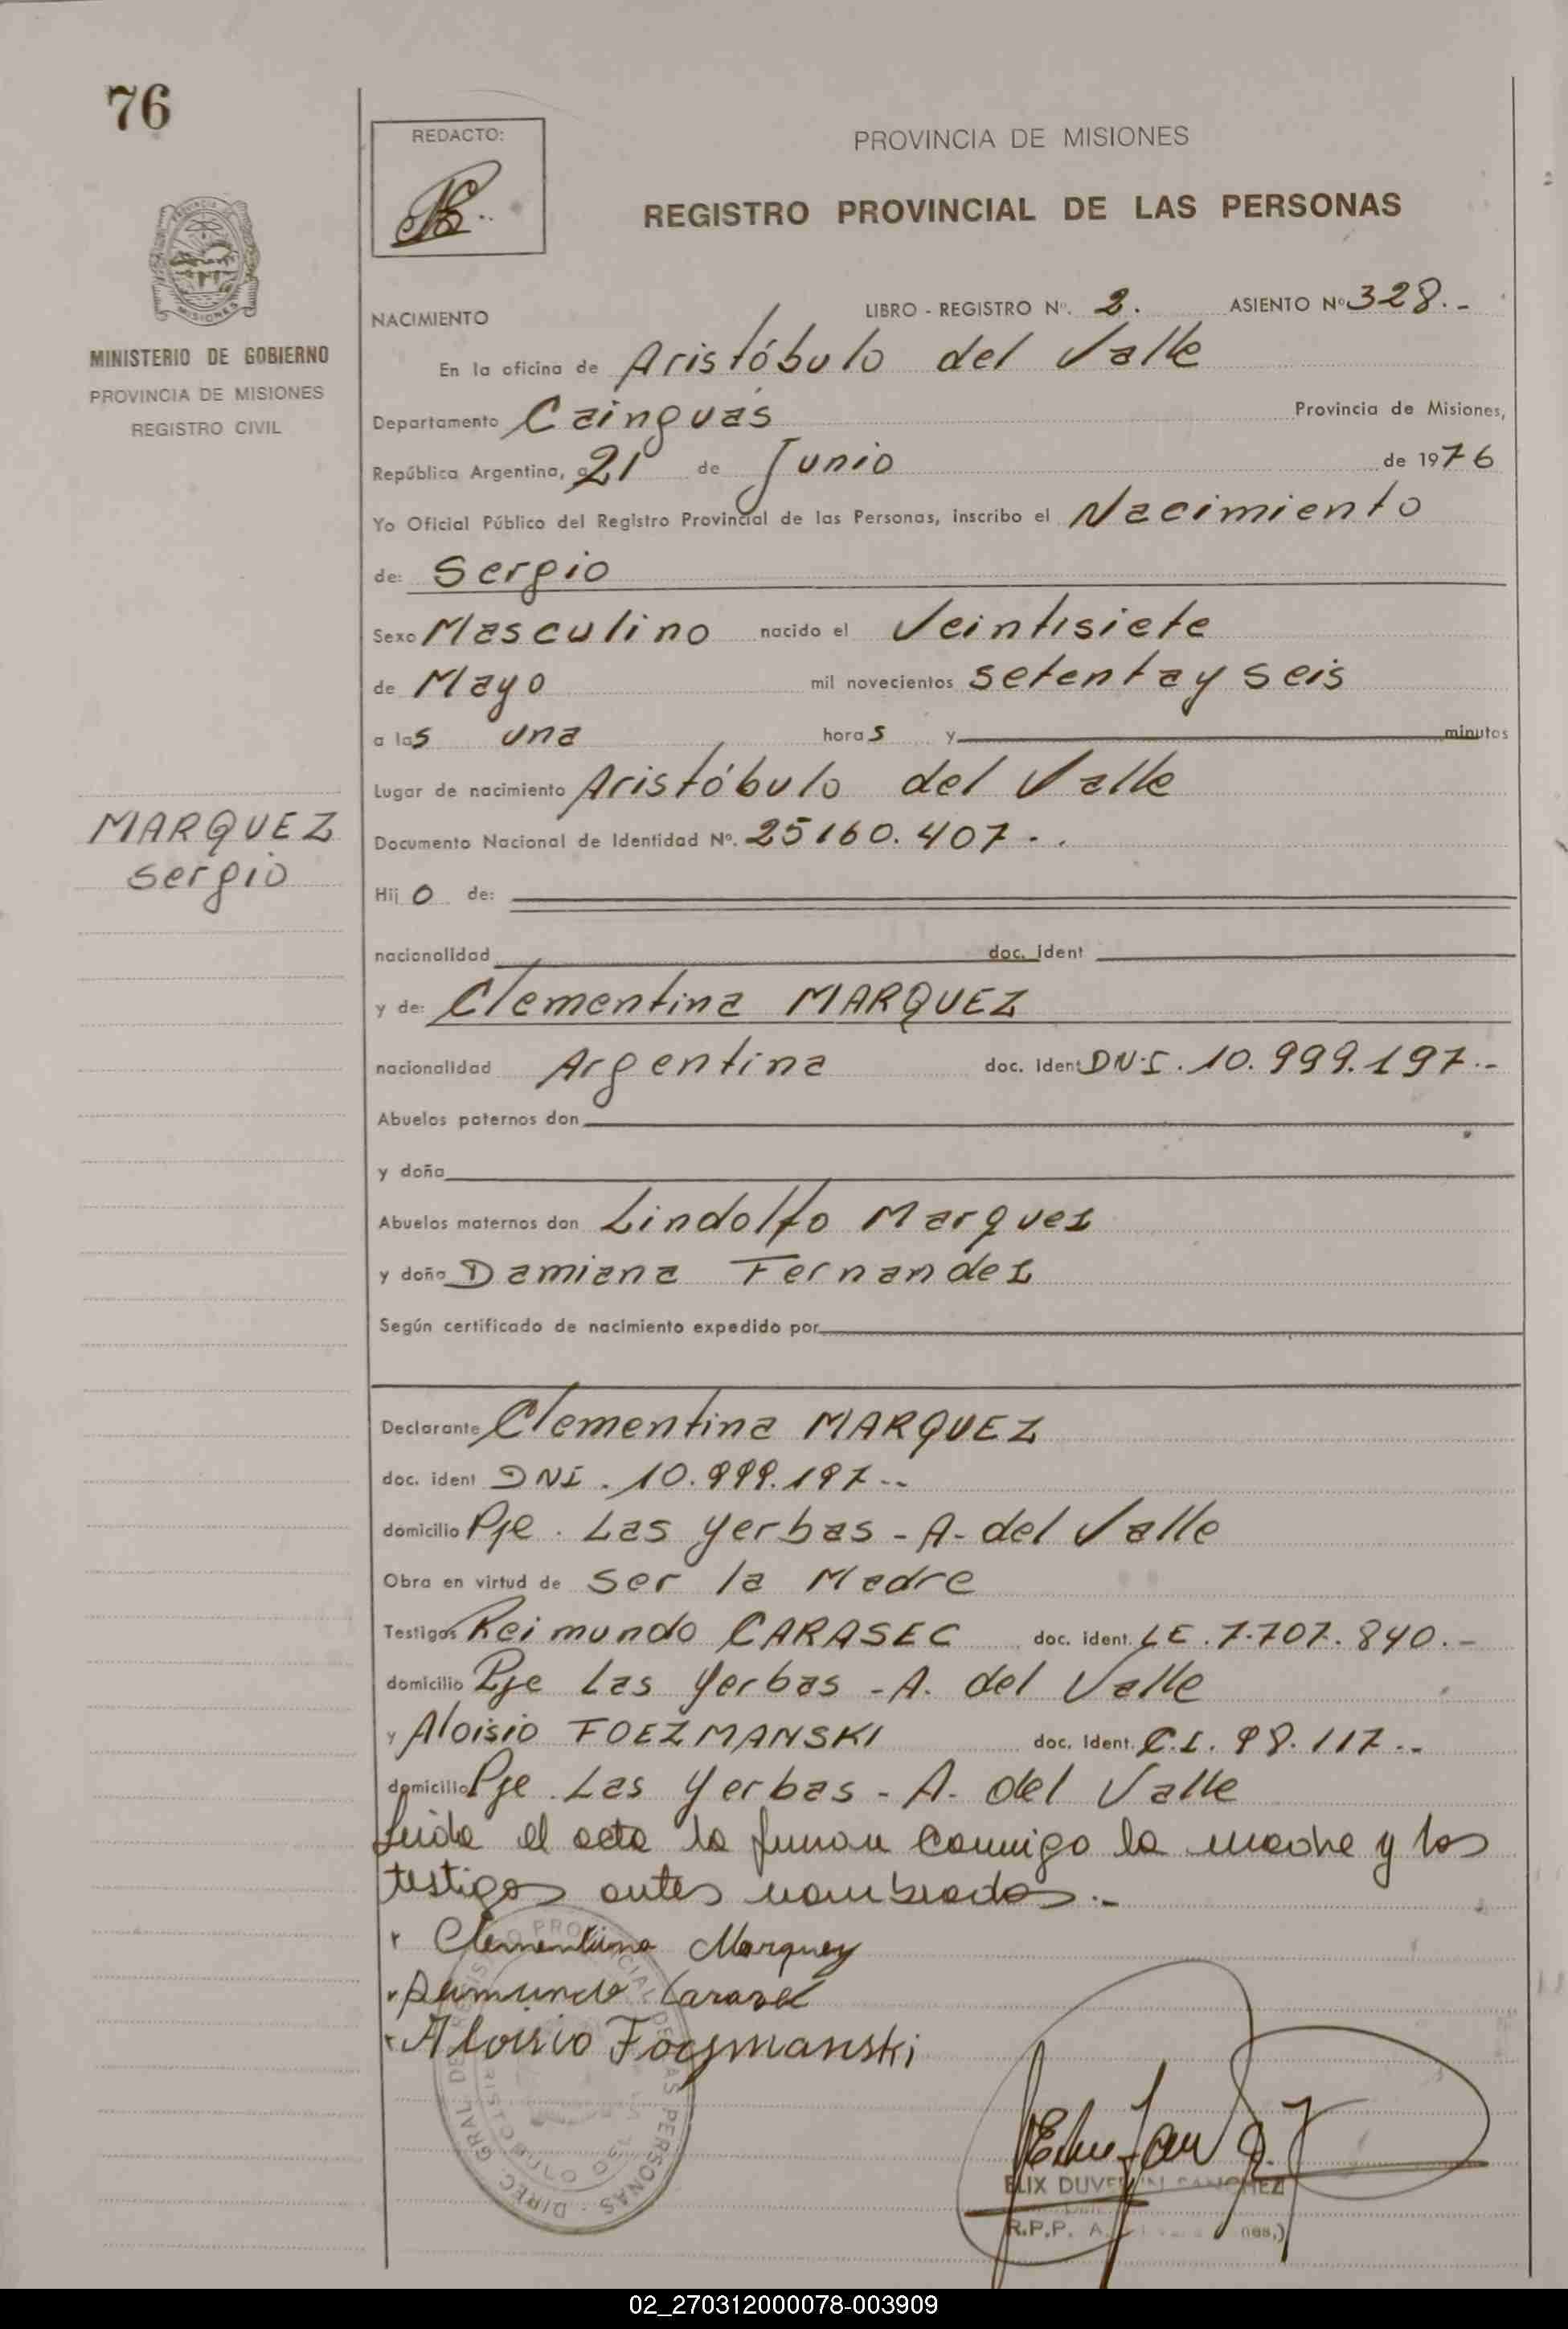 76
REDACTO:
PROVINCIA DE MISIONES
REGISTRO PROVINCIAL DE LAS PERSONAS
MINISTERIO DE GOBIERNO
PROVINCIA DE MISIONES
REGISTRO CIVIL
NACIMIENTO LIBRO - REGISTRO Nº. 2. ASIENTO Nº 328.-
En la oficina de Aristóbulo del Valle
Departamento Cainguás Provincia de Misiones,
República Argentina, a 21 de Junio de 1976
Yo Oficial Público del Registro Provincial de las Personas, inscribo el Nacimiento
de: Sergio
Sexo Masculino nacido el Veintisiete
de Mayo mil novecientos setenta y seis
a las una horas y minutos
Lugar de nacimiento Aristóbulo del Valle
MARQUEZ
Sergio
Documento Nacional de Identidad Nº. 25160.407-.
Hijo de:
nacionalidad doc. ident
y de: Clementina MARQUEZ
nacionalidad Argentina doc. ident DNI. 10.999.197.-
Abuelos paternos don
y doña
Abuelos maternos don Lindolfo Marques
y doña Damiana Fernandes
Según certificado de nacimiento expedido por
Declarante Clementina MARQUEZ
doc. ident DNI. 10.999.197--
domicilio Pje. Las Yerbas - A- del Valle
Obra en virtud de ser la Madre
Testigos Reimundo CARASEC doc. ident. LE. 7.707.840.-
domicilio Pje Las Yerbas - A. del Valle
y Aloisio FOEZMANSKI doc. ident. C.I. 98.117.-
domicilio Pje. Las Yerbas - A. del Valle
Leida el acta la firman conmigo la madre y los
testigos antes nombrados.-
Clementina Marquez
Aloisio Foezmanski
DIREC. GRAL. DE REGISTRO PROVINCIAL DE LAS PERSONAS
ELIX SANCHEZ
R.P.P. A.
02_270312000078-003909